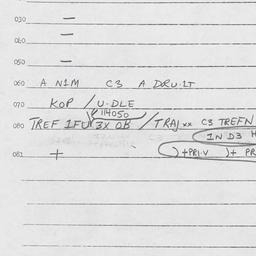 030 —
040 —
050 —
060 A N1M C3 A DRU.LT
070 KOP / U-DLE
114050
080 TREF 1FU 3X OB / TRAJ xx C3 TREFN
1N D3 H
081 + ) +PRI.V ) + PR